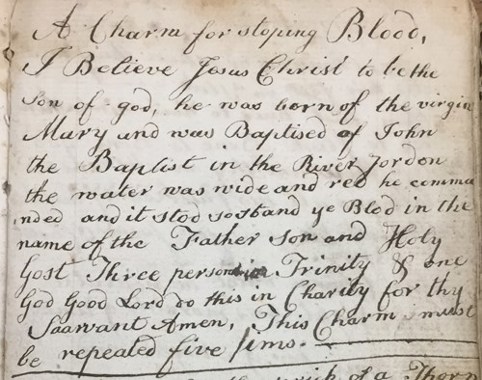 A Charm for stoping Blood,
I Believe Jesus Christ to be the
Son of god, he was born of the virgin
Mary and was Baptised of John
the Baptist in the River Jordon
the water was wide and red he comma
nded and it stod so stand ye Blod in the
name of the Father Son and Holy
Gost Three persons in Trinity & one
God Good Lord do this in Charity for thy
Saarvant Amen, This Charm must
be repealed five times.
of a Thorn